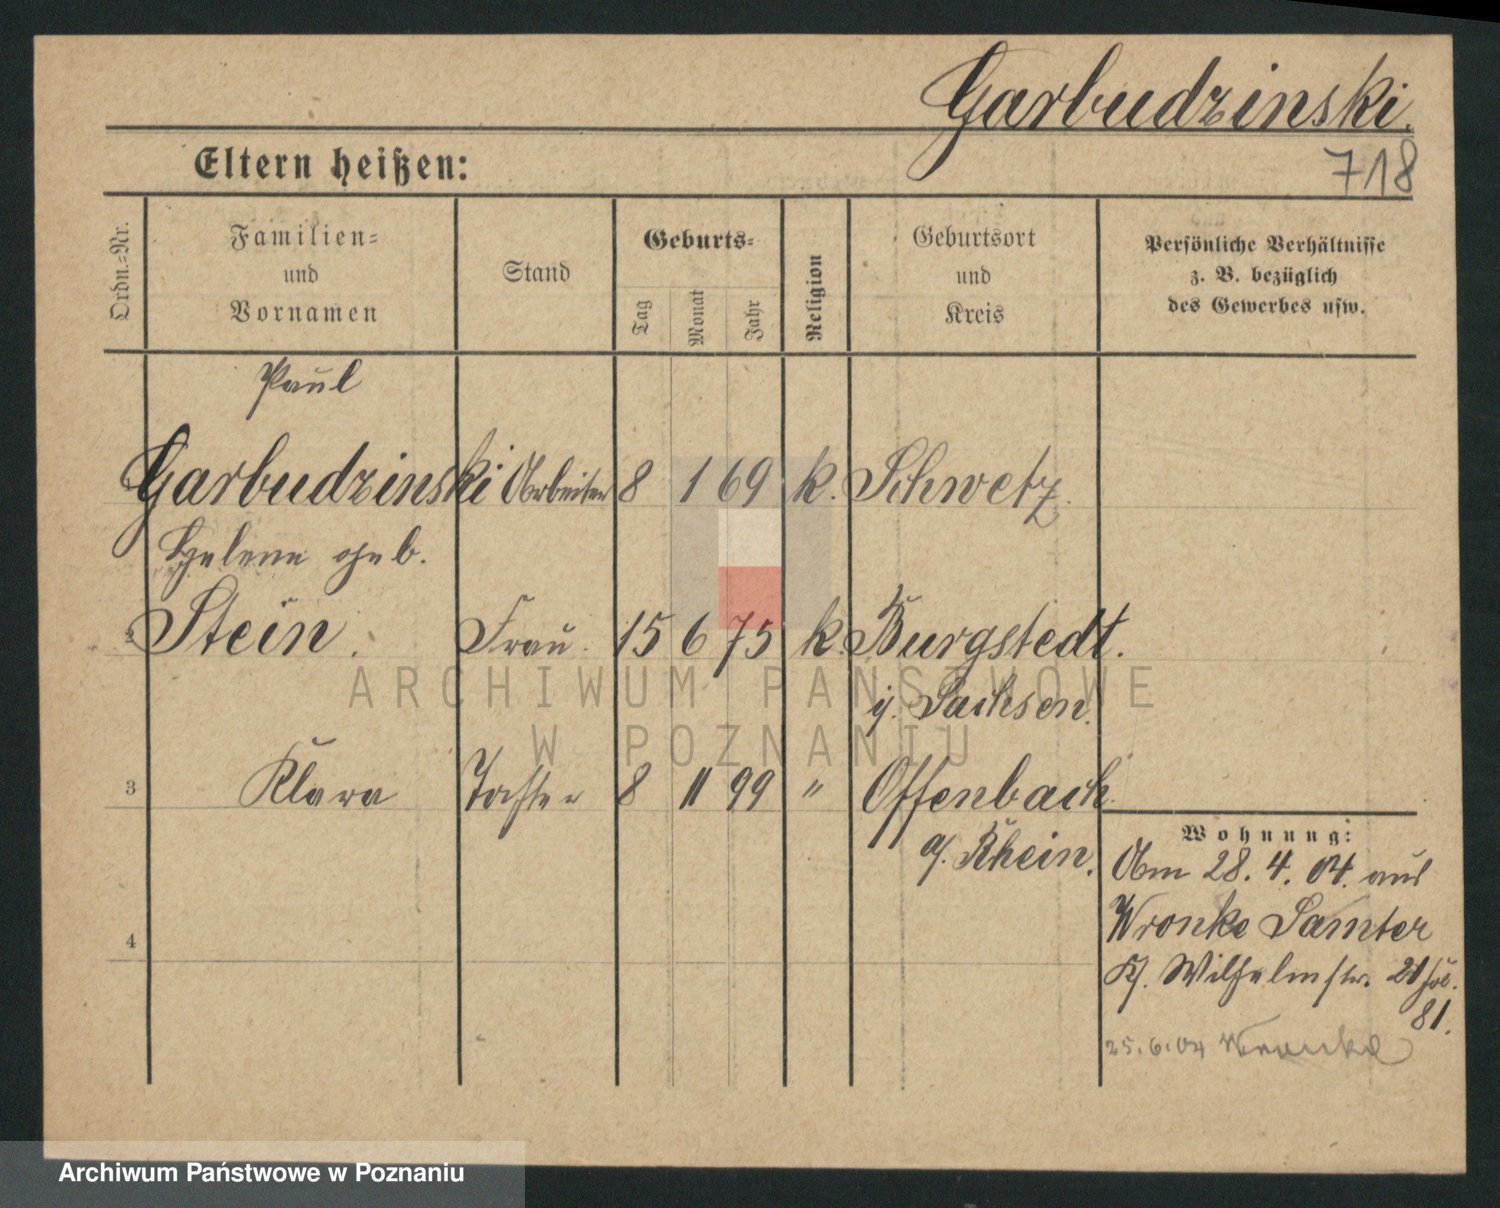 Garbudzinski.
Eltern heißen:
718
Ordn.-Nr.
Familien-
und
Vornamen
Stand
Geburts-
Tag
Monat
Jahr
Religion
Geburtsort
und
Kreis
Persönliche Verhältnisse
z. B. bezüglich
des Gewerbes usw.
Paul
Garbudzinski Arbeiter 8 1 69 k. Schwetz.
Helene geb.
2 Stein. Frau. 15 6 75 k. Burgstedt.
i/. Sachsen.
3 Klara Tochter 8 11 99 " Offenbach
a/. Rhein.
Wohnung:
Am 28. 4. 04. aus
Wronke Samter
Kr. Wilhelmstr. 21
81.
4
25.6.04 Wronke
ARCHIWUM PAŃSTWOWE
W POZNANIU
Archiwum Państwowe w Poznaniu